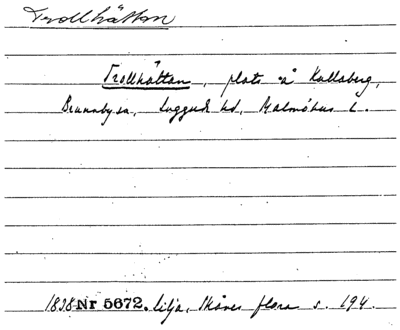 Trollhättan
Trollhättan, plats på Kullaberg,
Brunnby sn, Luggude hd, Malmöhus l.
1838 Nr 5672. Lilja, Skånes flora s. 194.